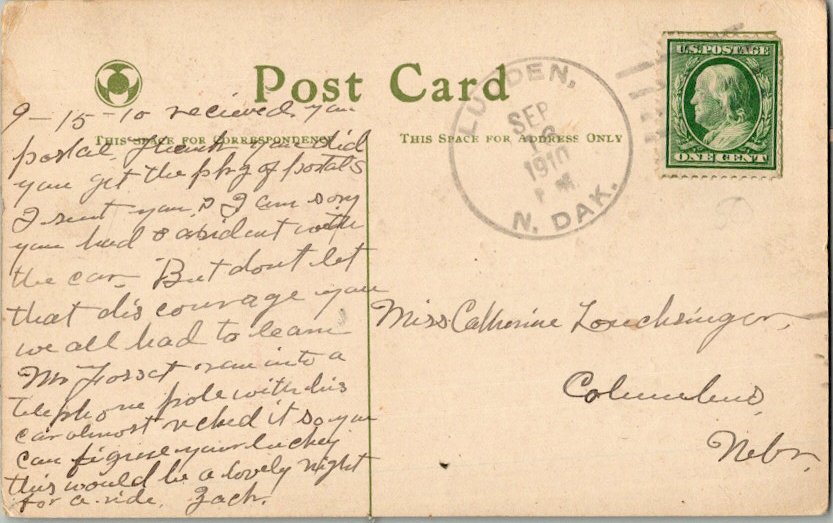 Post Card
THIS SPACE FOR CORRESPONDENCE
THIS SPACE FOR ADDRESS ONLY
U.S. POSTAGE
ONE CENT
LUDDEN,
SEP
1910
N. DAK.
9-15-10 recieved your
postal, thank you did
you get the pkg of postals
I sent you, & I am sory
you had a axident with
the car. But dont let
that discourage you
we all had to learn
Mr ran into a
telephone pole with his
car almost recked it so you
can figure your luckey
this would be a lovely night
for a ride. Zach.
Miss Catherine Louchsinger,
Columbus,
Nebr.